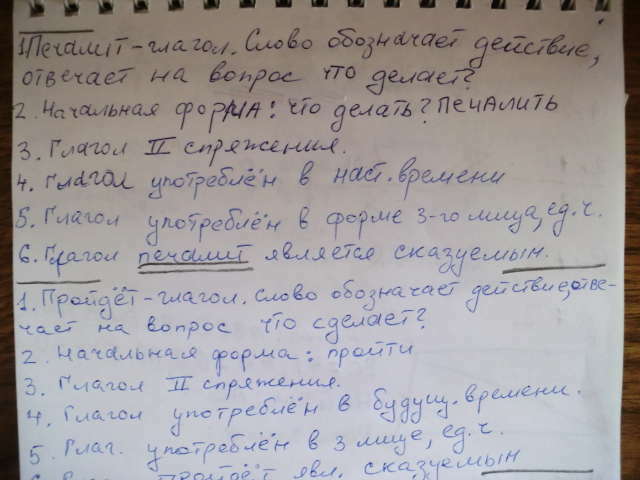 1.Печалит-глагол. Слово обозначает действие,
отвечает на вопрос что делает?
2. Начальная форма: что делать? Печалить
3. Глагол II спряжения.
4. Глагол употреблён в наст. времени
5. Глагол употреблён в форме 3-го лица, ед.ч.
6. Глагол печалит является сказуемым.
1. Пройдёт-глагол. Слово обозначает действие, отве-
чает на вопрос что сделает?
2. Начальная форма: пройти
3. Глагол II спряжения.
4. Глагол употреблён в будущ. времени.
5. Глаг. употреблён в 3 лице, ед.ч.
Пройдёт явл. сказуемым